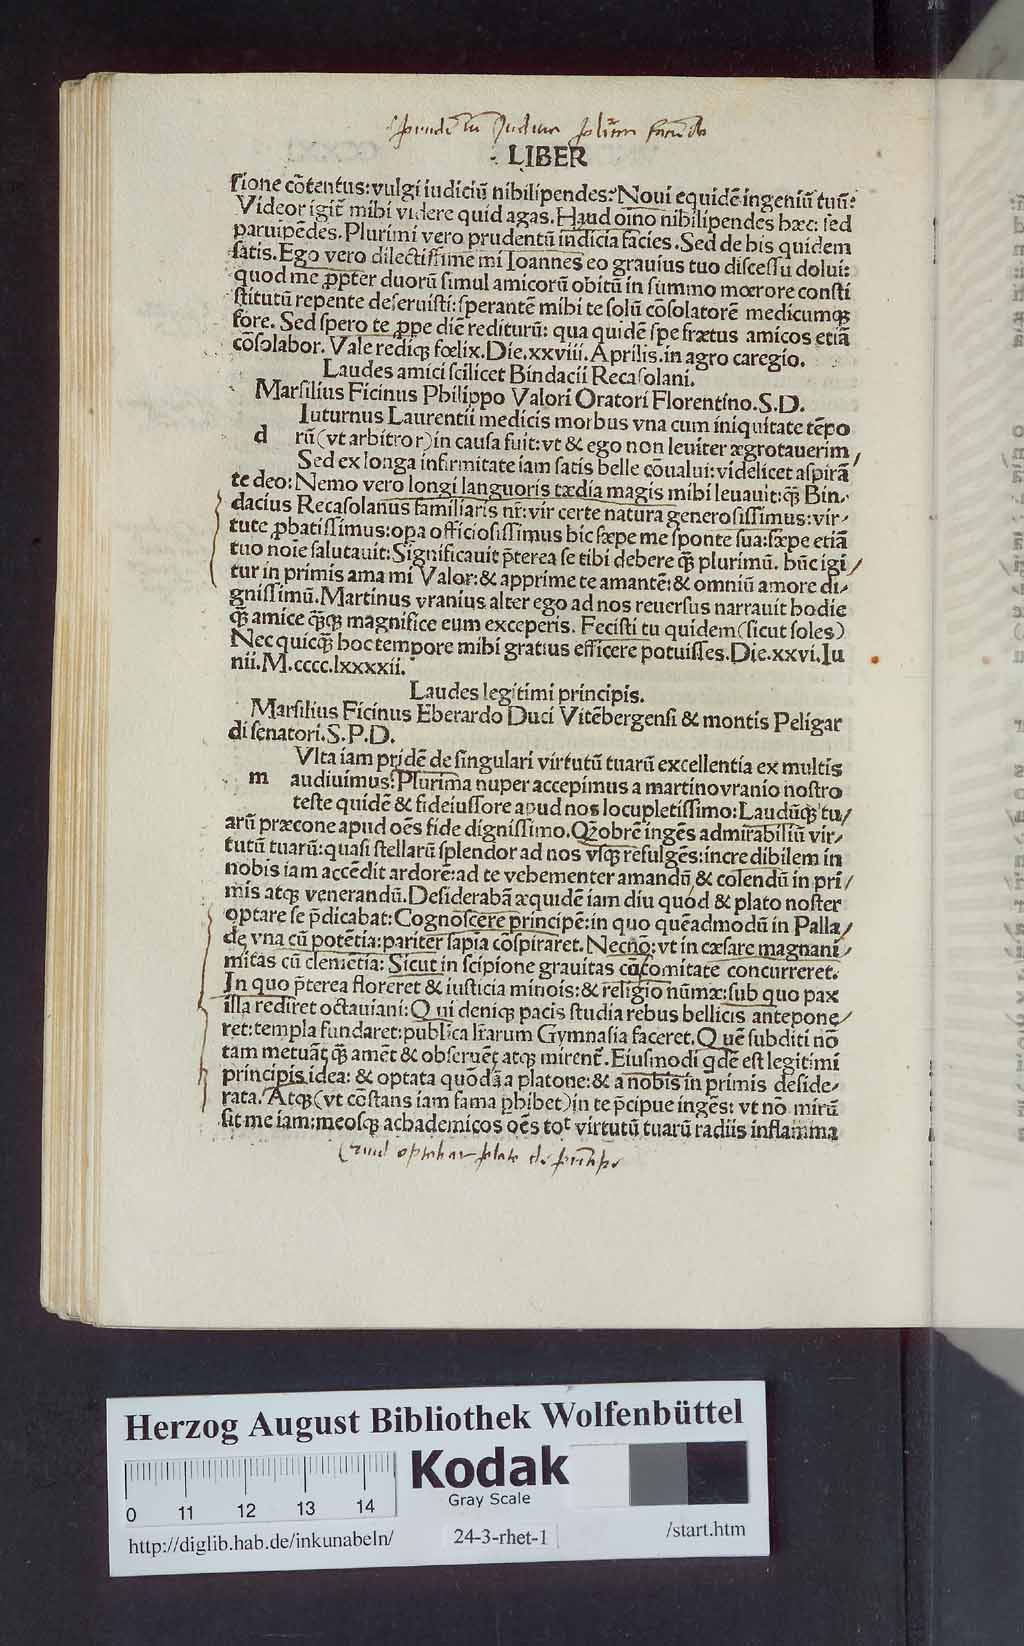 LIBER
sione cõtentus: vulgi iudiciũ nihilipendes? Noui equidẽ ingeniũ tuũ:
Videor igit̃ mihi videre quid agas. Haud oĩno nihilipendes hæc: sed
paruipẽdes. Plurimi vero prudentũ indicia facies. Sed de his quidem
satis. Ego vero dilectissime mi Ioannes eo grauius tuo discessu dolui:
quod me ꝓpter duorũ simul amicorũ obitũ in summo mœrore consti
stitutũ repente deseruisti: sperantẽ mihi te solũ cõsolatorẽ medicumqꝫ
fore. Sed spero te ꝓpe diẽ rediturũ: qua quidẽ spe frætus amicos etiã
cõsolabor. Vale rediqꝫ fœlix. Die. xxviii. Aprilis. in agro caregio.
Laudes amici scilicet Bindacii Recasolani.
Marsilius Ficinus Philippo Valori Oratori Florentino. S. D.
Iuturnus Laurentii medicis morbus vna cum iniquitate tẽpo
d rũ (vt arbitror) in causa fuit: vt & ego non leuiter ægrotauerim/
Sed ex longa infirmitate iam satis belle cõualui: videlicet aspirã
te deo: Nemo vero longi languoris tædia magis mihi leuauit: qꝫ̃ Bin-
dacius Recasolanus familiaris nr̃: vir certe natura generosissimus: vir-
tute ꝓbatissimus: opa officiosissimus hic sæpe me sponte sua: sæpe etiã
tuo noie salutauit: Significauit p̃terea se tibi debere qꝫ̃ plurimũ. hũc igi/
tur in primis ama mi Valor: & apprime te amantẽ: & omniũ amore di-
gnissimũ. Martinus vranius alter ego ad nos reuersus narrauit hodie
qꝫ̃ amice qꝫ̃qꝫ magnifice eum exceperis. Fecisti tu quidem (sicut soles)
Nec quicqꝫ̃ hoc tempore mihi gratius efficere potuisses. Die. xxvi. Iu
nii. M. cccc. lxxxxii.
Laudes legitimi principis.
Marsilius Ficinus Eberardo Duci Vitẽbergensi & montis Peligar
di senatori. S. P. D.
Vlta iam pridẽ de singulari virtutũ tuarũ excellentia ex multis
m audiuimus: Plurima nuper accepimus a martino vranio nostro
teste quidẽ & fideiussore apud nos locupletissimo: Laudũqꝫ tu/
arũ præcone apud oẽs fide dignissimo. Qꝫobrẽ ingẽs admirabiliũ vir-
tutũ tuarũ: quasi stellarũ splendor ad nos vsqꝫ refulgẽs: incredibilem in
nobis iam accẽdit ardorẽ: ad te vehementer amandũ & colendũ in pri/
mis atqꝫ venerandũ. Desiderabã æquidẽ iam diu quod & plato noster
optare se p̃dicabat: Cognoscere principẽ: in quo quẽadmodũ in Palla/
de vna cũ potẽtia: pariter sapĩa cõspiraret. Necnõ: vt in cæsare magnani/
mitas cũ clemẽtia: Sicut in scipione grauitas cũ comitate concurreret.
In quo p̃terea floreret & iusticia minois: & religio nũmæ: sub quo pax
illa rediret octauiani: Qui deniqꝫ pacis studia rebus bellicis antepone/
ret: templa fundaret: publica lr̃arum Gymnasia faceret. Quẽ subditi nõ
tam metuãt qꝫ̃ amẽt & obseruẽt atqꝫ mirent̃. Eiusmodi qdẽ est legitimi
principis idea: & optata quõdã a platone: & a nobis in primis deside-
rata. Atqꝫ (vt cõstans iam fama p̃hibet) in te p̃cipue ingẽs: vt nõ mirũ
sit me iam: meosqꝫ achademicos oẽs tot virtutũ tuarũ radiis inflamma
Quid optabat plato de principe
Herzog August Bibliothek Wolfenbüttel
Kodak
Gray Scale
0 11 12 13 14
http://diglib.hab.de/inkunabeln/ 24-3-rhet-1 /start.htm